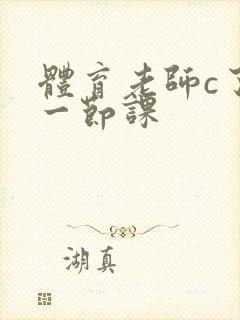 體育老師c了
一節課
湖真